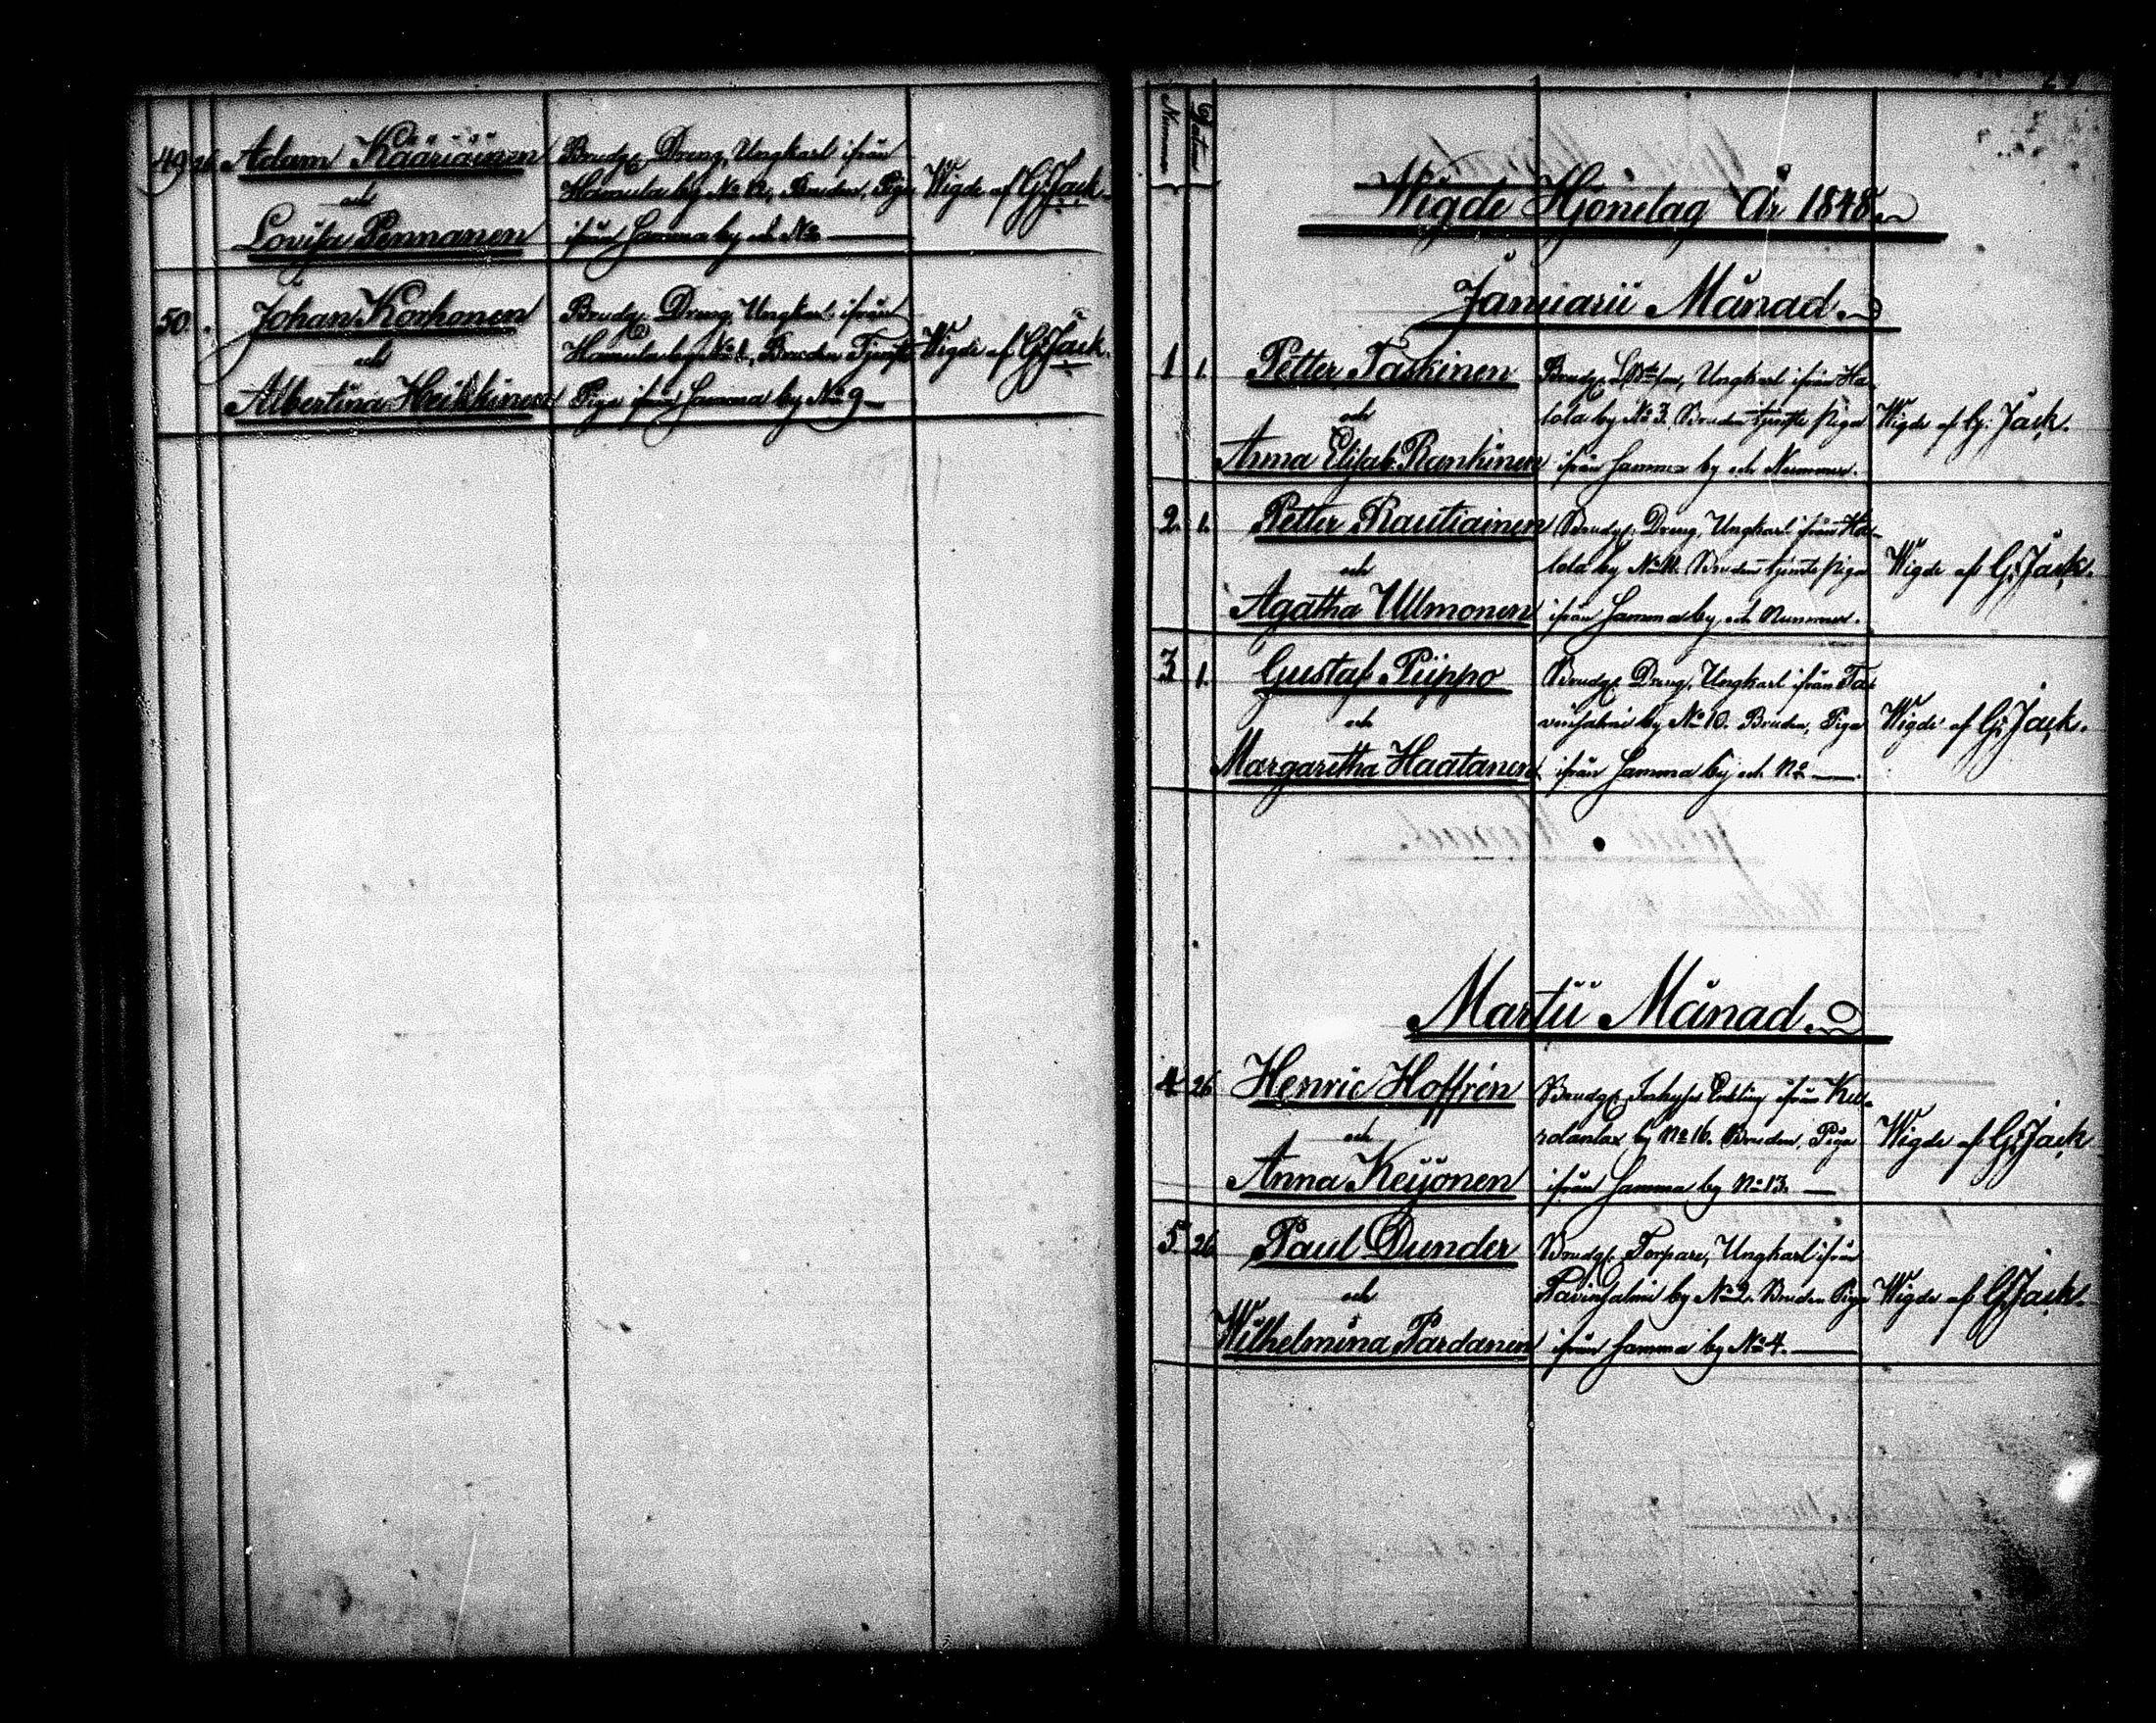 49 26. Adam Kääriäinen
och
Lovisa Pennanen
Brudg. Dreng, Ungkarl ifrån
Hamula by No 12, Bruden, Piga
ifrån samma by och No
Wigde af G: Jack.
50 Johan Korhonen
och
Albertina Heikkinen
Brudg. Dreng, Ungkarl ifrån
Hamula by No 1, Bruden Tjenste
Piga ifrån samma by No 9
Wigde af G: Jack.
Nummer
Datum
Wigde Hjonelag År 1848
Januarii Månad.
1 1. Petter Taskinen
och
Anna Elisab. Rankinen
Brudg. Ungkarl ifrån Ha-
lola by No 3. Bruden tjenste piga
ifrån samma by och Nummer.
Wigde af G: Jack.
2. 1. Petter Rautiainen
och
Agatha Ullmonen
Brudg. Dreng, Ungkarl ifrån Ha-
lola by No 11. Bruden tjenste piga
ifrån samma by och Nummer.
Wigde af G: Jack.
3 1. Gustaf Piippo
och
Margaretha Haatanen
Brudg. Dreng, Ungkarl ifrån Ta-
vinsalmi by No 10. Bruden, Piga
ifrån samma by och No
Wigde af G: Jack.
Martii Månad.
4. 26 Henric Hoffrén
och
Anna Keijonen
Brudg. Inhyses Enkling ifrån Kur-
rolanlax by No 16. Bruden, Piga
ifrån samma by No 13.
Wigde af G: Jack
5. 26 Paul Dunder
och
Wilhelmina Pardanen
Brudg. Torpare, Ungkarl ifrån
Tavinsalmi by No 2. Bruden Piga
ifrån samma by No 4.
Wigde af G: Jack.